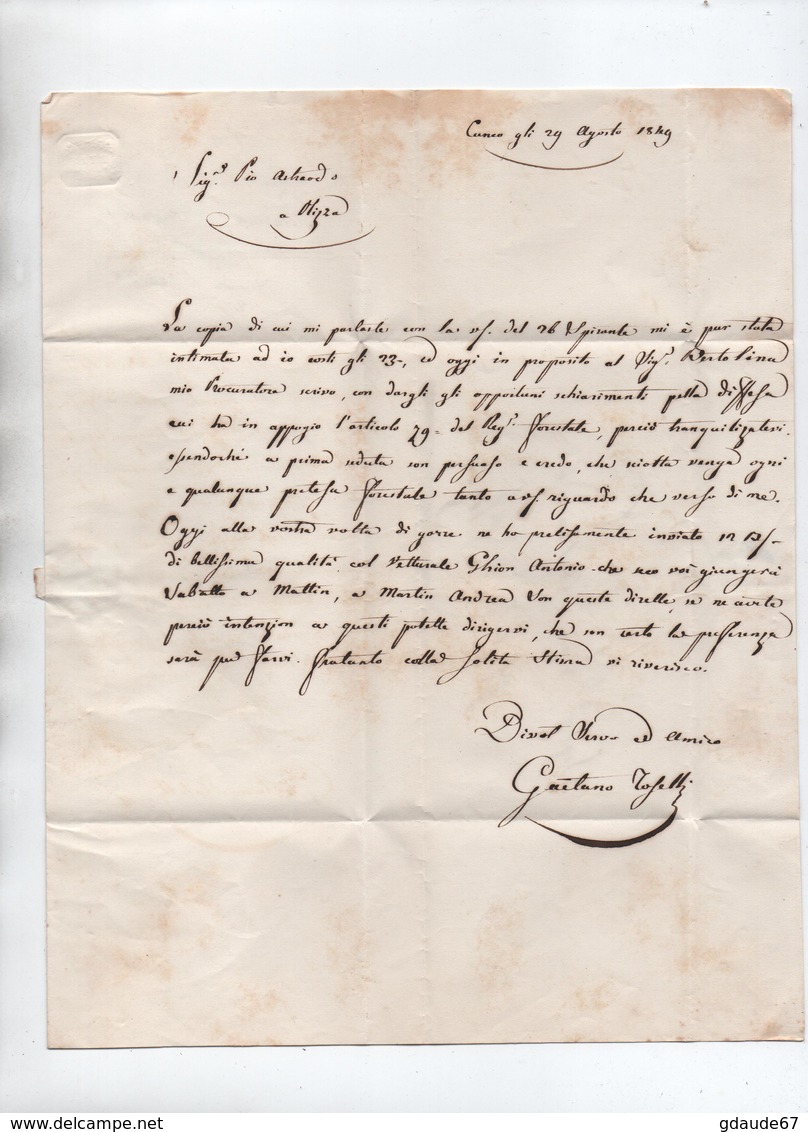 Cuneo gli 29 Agosto 1849
Sig.r Pio Astraudo
a Nizza
La copia di cui mi parlaste con la vs. del 26 spirante mi è pur stata
intimata ad io costì gli 23, ed oggi in proposito al Sig.r Bertolina
mio Procuratore scrivo, con dargli gli opportuni schiarimenti pella diffesa
cui ha in appogio l'articolo 29 del Reg.o forestale, perciò tranquilizatevi.
essendochè a prima seduta son persuaso e credo, che sciolta venga ogni
e qualunque pretesa forestale tanto a vs riguardo che verso di me.
Oggi alla vostra volta di gorre ne ho prelisamente inviato 12
di bellissima qualità col vetturale Ghion Antonio che seco voi giungerà
Sabatto a Mattin, a Martin Andrea son queste dirette, se ne avete
perciò intenzion a questi potette dirigervi, che son certo la preferenza
sarà per farvi. frattanto colla solita Stima vi riverisco.
Divot Servo ed Amico
Gaetano Toselli
gdaude67